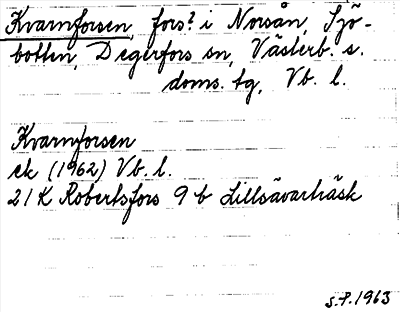 Kvarnforsen, fors? i Norsån, Sjö-
botten, Degerfors sn, Västerb. s.
doms. tg, Vb. l.
Kvarnforsen
ek (1962) Vb. l.
21 K Robertsfors 9 b Lillsävarträsk
S.P. 1963